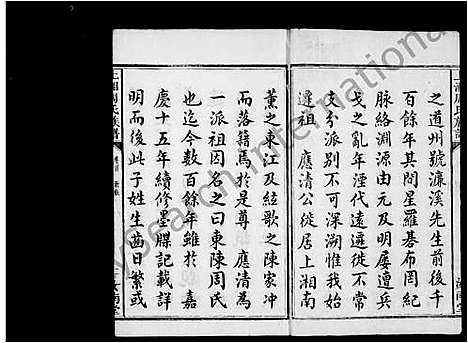 之道州號濂溪先生前後千
百餘年其間星羅碁布罔紀
脉絡淵源由元及明屢遭兵
戈之亂年湮代遠遷徙不常
支分派别不可深溯惟我始
遷祖 應清公徙居上湘南
薰之東江及絃歌之陳家冲
而落籍焉於是尊 應清為
一派祖因名之曰東陳周氏
也迄今數百餘年雖於 嘉
慶十五年續修墨牒記載詳
明而後此子姓生齒日繁或
上湘周氏族譜